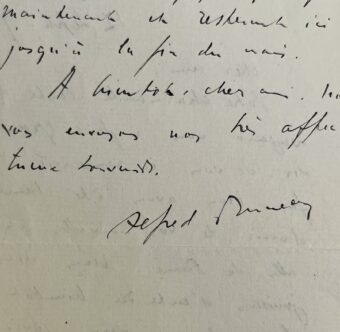 maintenant et resterons ici
jusqu'à la fin du mois.
A bientôt, cher ami. No
vos envoyons nos très affec
tueux souvenirs.
Alfred Bruneau